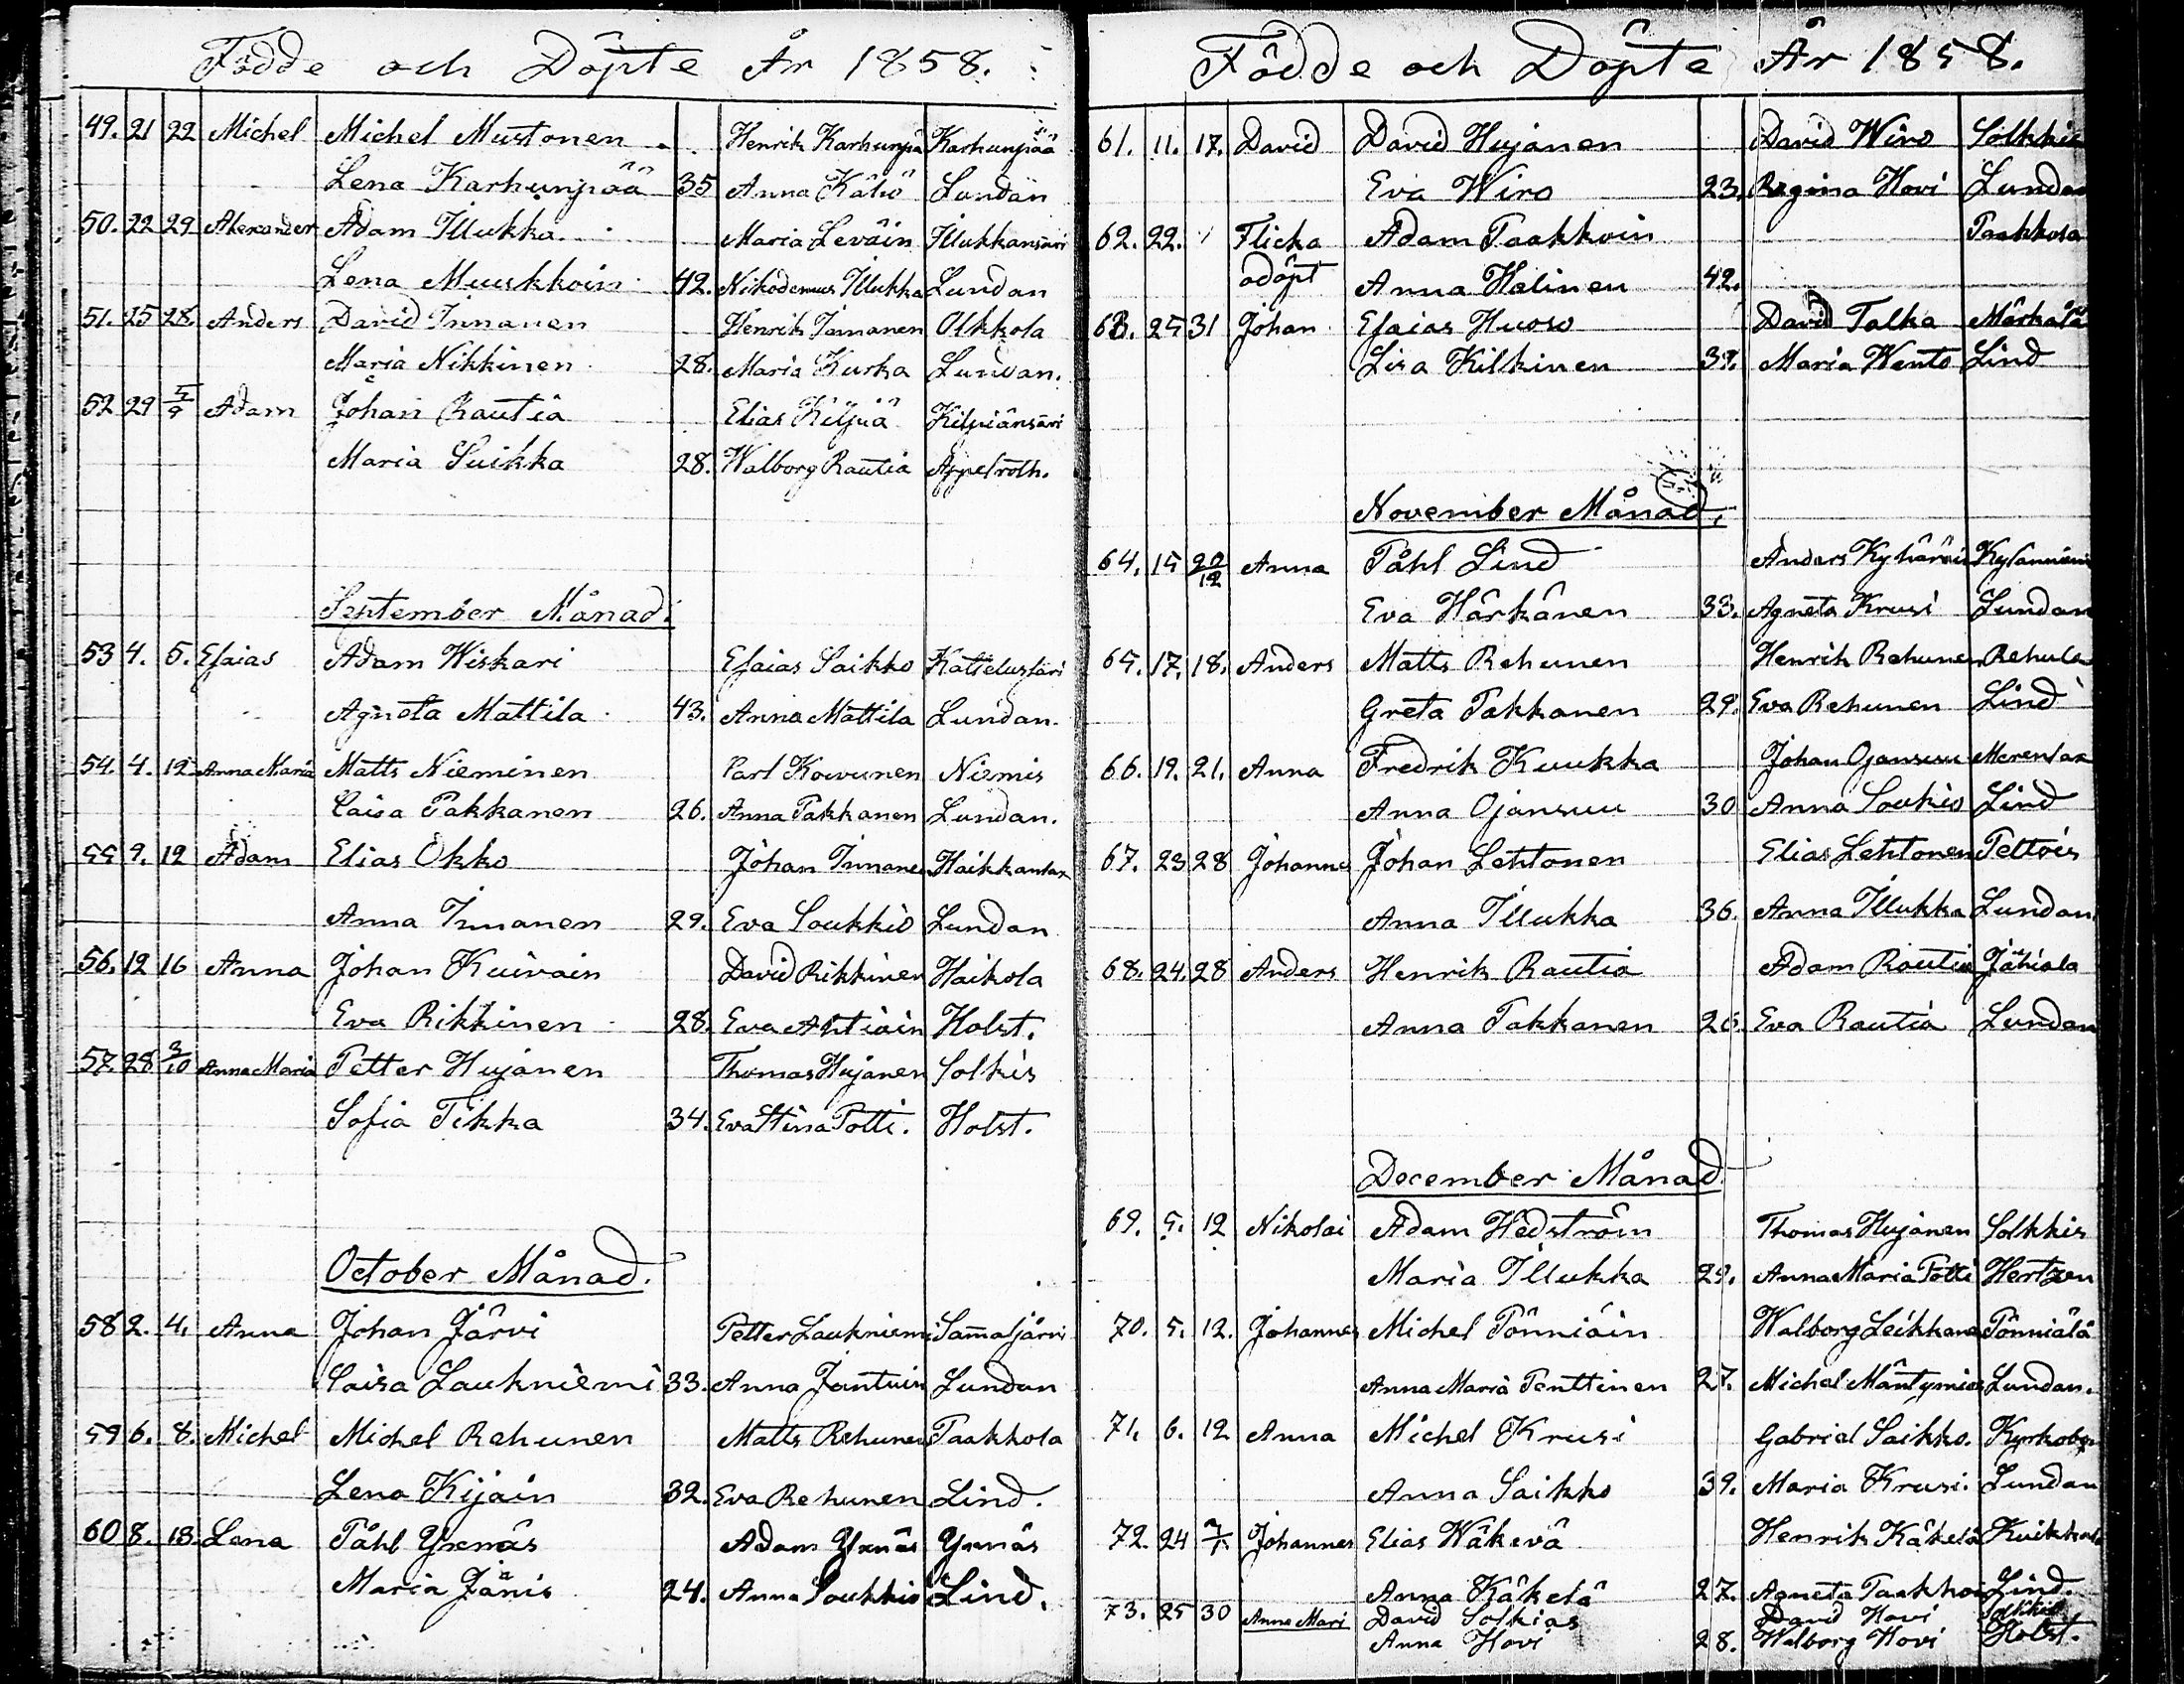 Födde och Döpte År 1858.
49. 21 22 Michel Michel Mustonen Henrik Karhunpä Karhunpää
Lena Karhunpää 35 Anna Kähö Lundan
50. 22 29 Alexander Adam Illukka Maria Leväin Illukkansari
Lena Muukkoin 42. Nikodemus Illukka Lundan
51. 25 28. Anders David Innanen Henrik Innanen Olkkola
Maria Nikkinen 28. Maria Kurka Lundan.
52 29 5/9 Adam Johan Rautia Elias Kilpiä Kilpiänsari
Maria Suikka 28. Walborg Rautia Appelroth.
September Månad.
53 4. 5. Esaias Adam Wiskari Esaias Saikko Kattelussari
Agneta Mattila 43. Anna Mattila Lundan.
54. 4. 12 Anna Maria Matts Nieminen Carl Kowunen Niemis
Caisa Pakkanen 26. Anna Pakkanen Lundan.
55 9. 12 Adam Elias Okko Johan Innanen Haikkanlax
Anna Innanen 29. Eva Soukkio Lundan
56. 12 16 Anna Johan Kuivain David Rikkinen Haikola
Eva Rikkinen 28. Eva Ahtiain Holst.
57. 28 3/10 Anna Maria Petter Hujanen Thomas Hujanen Solkis
Sofia Tikka 34. Eva Stina Potti. Holst.
October Månad.
58 2. 4. Anna Johan Järvi Petter Laukniemi Samaljärvi
Caisa Laukniemi 33. Anna Jantuin Lundan
59 6. 8. Michel Michel Rehunen Matts Rehunen Paakkola
Lena Kijäin 32. Eva Rehunen Lind.
60 8. 18. Lena Påhl Yxenäs Adam Yxnäs Yxnäs
Maria Jänis 24. Anna Soukkio Lind.
Födde och Döpte År 1858.
61. 11. 17. David David Hujanen David Wiro Solkkis
Eva Wiro 23. Regina Hovi Lundan
62. 22. Flicka Adam Paakkoin Paakkola
odöpt Anna Halinen 42.
63. 25 31 Johan Esaias Huoso David Talka Märkälä
Lisa Kilkinen 39. Maria Wento Lind
November Månad.
64. 15 20/12 Anna Påhl Lind Anders Kyhäräin Kylänniemi
Eva Härkänen 33. Agneta Krusi Lundan
65. 17. 18. Anders Matts Rehunen Henrik Rehunen Rehula
Greta Pakkanen 29. Eva Rehunen Lind
66. 19. 21. Anna Fredrik Kuukka Johan Ojansuu Merenlax
Anna Ojansuu 30 Anna Soukio Lind
67. 23 28 Johannes Johan Lehtonen Elias Lehtonen Peltois
Anna Illukka 36. Anna Illukka Lundan
68. 24. 28 Anders Henrik Rautia Adam Rautia Jähiälä
Anna Pakkanen 26. Eva Rautia Lundan
December Månad.
69. 5. 12 Nikolai Adam Hedström Thomas Hujanen Solkkis
Maria Illukka 29. Anna Maria Potti Hertzen
70. 5. 12. Johannes Michel Pönniäin Walborg Leikkanen Pönniälä
Anna Maria Penttinen 27. Michel Mäntymies Lundan.
71. 6. 12 Anna Michel Krusi Gabriel Saikko. Kyrkobyn
Anna Saikko 39. Maria Krusi. Lundan
72. 24 2/1 Johannes Elias Wäkevä Henrik Käkelä Kuikkala
Anna Käkelä 27. Agneta Paakkoin Lind.
73. 25 30 Anna Mari David Solkias David Hovi Solkkis
Anna Hovi 28. Walborg Hovi Holst.